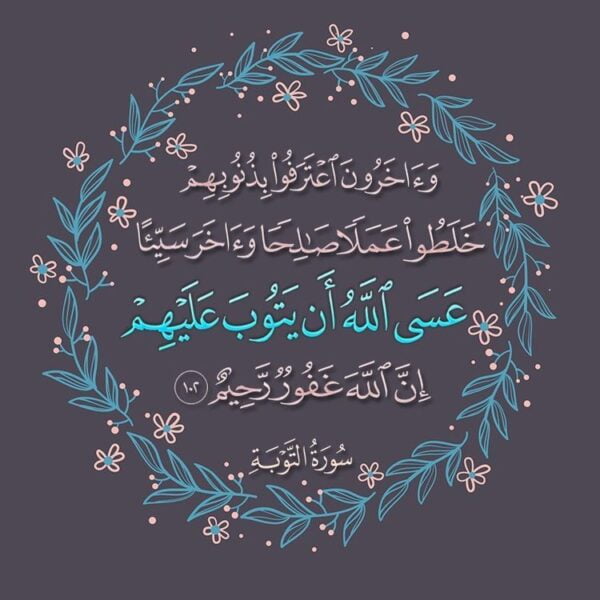 وَءَاخَرُونَ ٱعۡتَرَفُوا۟ بِذُنُوبِهِمۡ
خَلَطُوا۟ عَمَلࣰا صَـٰلِحࣰا وَءَاخَرَ سَیِّئًا
عَسَى ٱللَّهُ أَن یَتُوبَ عَلَیۡهِمۡۚ
إِنَّ ٱللَّهَ غَفُورࣱ رَّحِیمٌ ١٠٢
سُورَةُ التَّوۡبَةِ